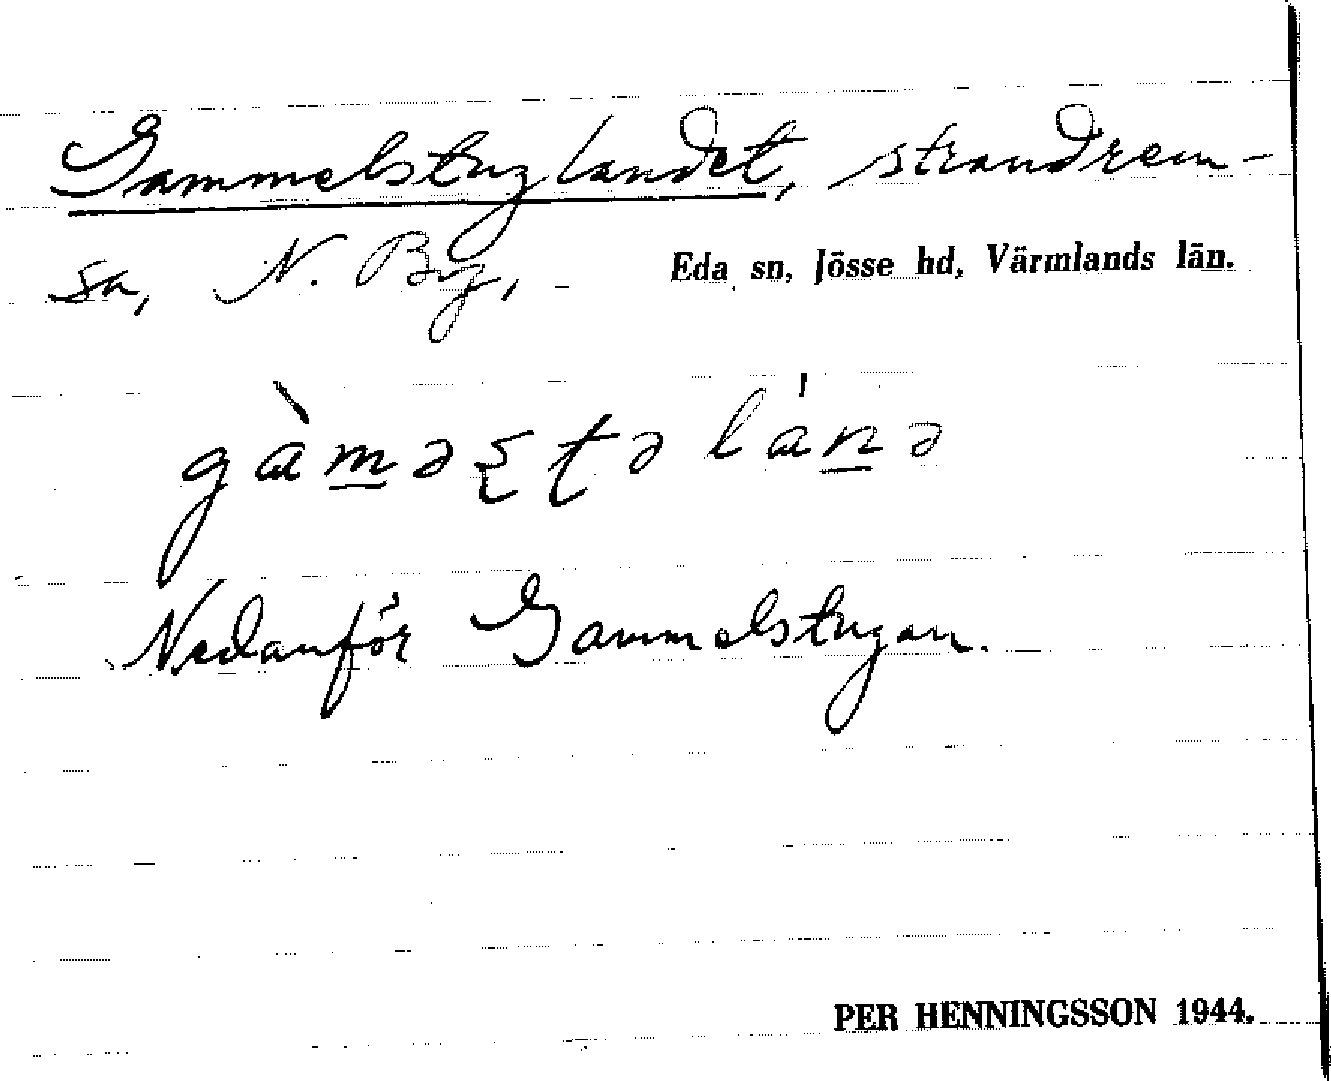 Gammelstuglandet, strandrem-
sa, N. By, Eda sn, Jösse hd, Värmlands län.
gàməʂʈə lánə
Nedanför Gammelstugan.
PER HENNINGSSON 1944.